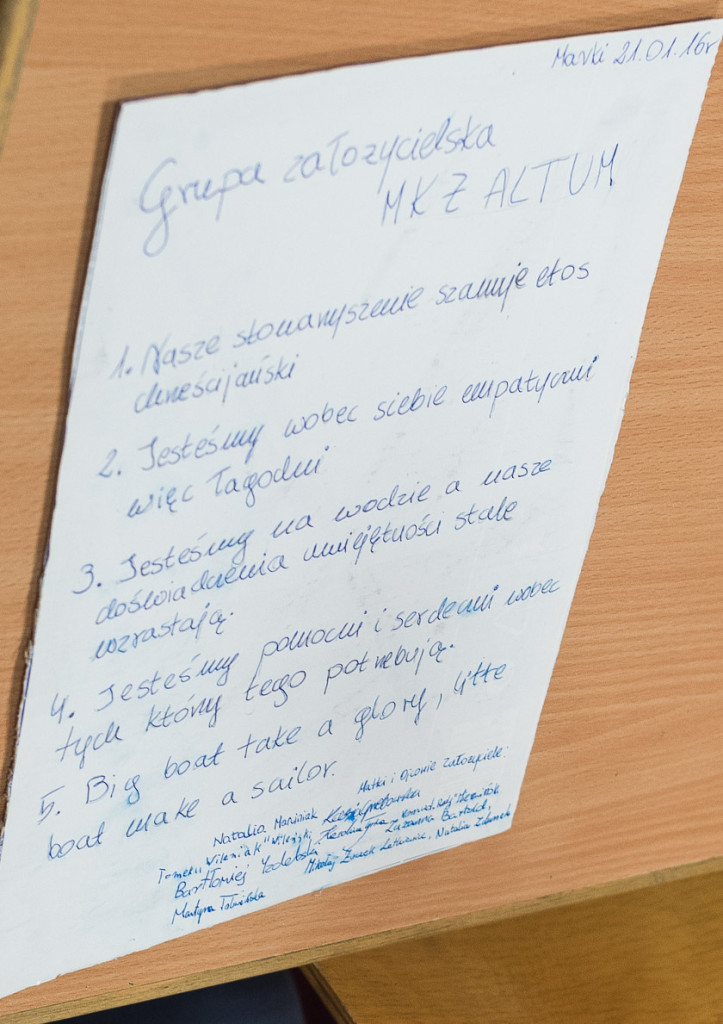 Marki 21.01.16r
Grupa założycielska
MKŻ ALTUM
1. Nasze stowarzyszenie szanuje etos
chrześcijański
2. Jesteśmy wobec siebie empatyczni
więc łagodni
3. Jesteśmy na wodzie a nasze
doświadczenia umiejętności stale
wzrastają.
4. Jesteśmy pomocni i serdeczni wobec
tych którzy tego potrzebują.
5. Big boat take a glory, little
boat make a sailor.
Matki i Ojcowie Założyciele:
Natalia Marciniak
Tomek "Wileniak" Wileński, Karolina
Bartłomiej Zuzanna Bartold,
Martyna Mikołaj Natalia